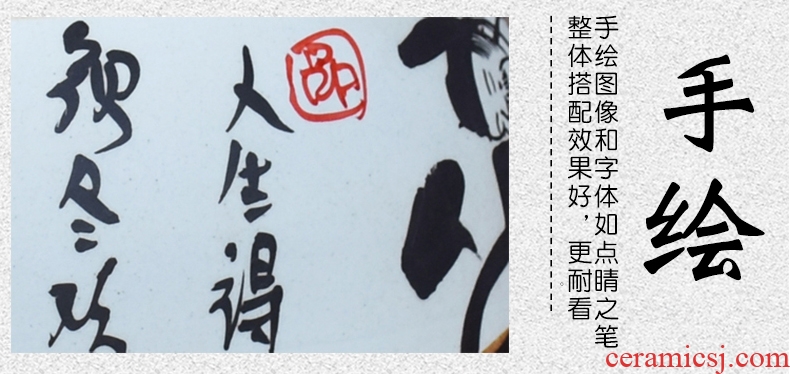 手绘
手绘图像和字体如点睛之笔
整体搭配效果好，更耐看
人生得
须尽欢
ceramicsj.com